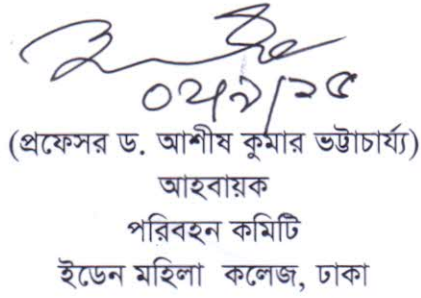 (প্রফেসর ড. আশীষ কুমার ভট্টাচার্য্য)
আহবায়ক
পরিবহন কমিটি
ইডেন মহিলা কলেজ, ঢাকা